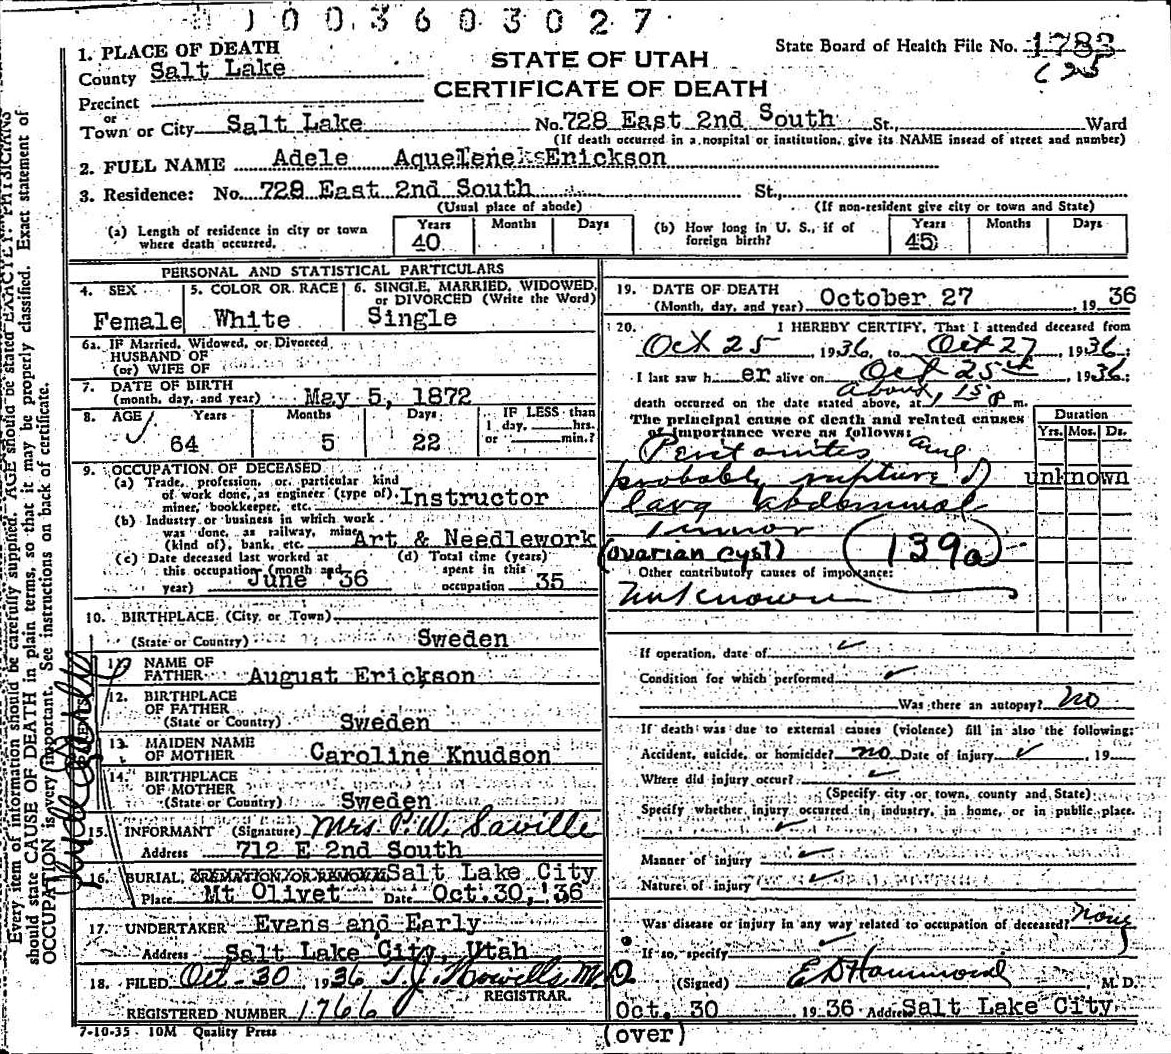 1003603027
1. PLACE OF DEATH
County Salt Lake
Precinct
or
Town or City Salt Lake
STATE OF UTAH
CERTIFICATE OF DEATH
State Board of Health File No. 1783
C 25
No. 728 East 2nd South St., Ward
(If death occurred in a hospital or institution, give its NAME instead of street and number)
2. FULL NAME Adele Erickson
3. Residence: No. 728 East 2nd South St,
(Usual place of abode) (If non-resident give city or town and State)
(a) Length of residence in city or town where death occurred. Years 40 Months Days
(b) How long in U. S., if of foreign birth? Years 45 Months Days
PERSONAL AND STATISTICAL PARTICULARS
4. SEX Female
5. COLOR OR RACE White
6. SINGLE, MARRIED, WIDOWED, or DIVORCED (Write the Word)
Single
6a. IF Married, Widowed, or Divorced
HUSBAND OF
(or) WIFE OF
7. DATE OF BIRTH
(month, day, and year) May 5, 1872
8. AGE Years Months Days IF LESS than
1 day, hrs.
or min.?
64 5 22
9. OCCUPATION OF DECEASED
(a) Trade, profession, or particular kind
of work done, as engineer (type of),
miner, bookkeeper, etc. Instructor
(b) Industry or business in which work
was done, as railway, mine
(kind of), bank, etc. Art & Needlework
(c) Date deceased last worked at
this occupation (month and
year) June '36
(d) Total time (years)
spent in this
occupation 35
10. BIRTHPLACE (City or Town)
(State or Country) Sweden
11. NAME OF
FATHER August Erickson
12. BIRTHPLACE
OF FATHER
(State or Country) Sweden
13. MAIDEN NAME
OF MOTHER Caroline Knudson
14. BIRTHPLACE
OF MOTHER
(State or Country) Sweden
15. INFORMANT (Signature) Mrs P. W. Saville
Address 712 E 2nd South
16. BURIAL, CREMATION OR REMOVAL Salt Lake City
Place Mt Olivet Date Oct. 30, '36
17. UNDERTAKER Evans and Early
Address Salt Lake City, Utah
18. FILED Oct-30 1936 T. J. Howells M. D.
REGISTRAR.
REGISTERED NUMBER 1766
7-10-35 10M Quality Press
19. DATE OF DEATH
(Month, day, and year) October 27 1936
20. I HEREBY CERTIFY, That I attended deceased from
Oct 25, 1936, to Oct 27, 1936;
I last saw her alive on Oct 25th, 1936;
death occurred on the date stated above, at About 1 15 P m.
The principal cause of death and related causes
of importance were as follows:
Duration
Yrs. Mos. Ds.
Peritonites and
probably rupture of unknown
larg Abdominal
Tumor
(ovarian cyst) 139a
Other contributory causes of importance:
Unknown
If operation, date of
Condition for which performed
Was there an autopsy? no
If death was due to external causes (violence) fill in also the following:
Accident, suicide, or homicide? no Date of injury , 19
Where did injury occur?
(Specify city or town, county and State)
Specify whether injury occurred in industry, in home, or in public place.
Manner of injury
Nature of injury
Was disease or injury in any way related to occupation of deceased? none
If so, specify
(Signed) E D Hammond M. D.
Oct. 30 1936 Address Salt Lake City
(over)
Every item of information should be carefully supplied. AGE should be stated EXACTLY. PHYSICIANS
should state CAUSE OF DEATH in plain terms, so that it may be properly classified. Exact statement of
OCCUPATION is very important. See instructions on back of certificate.